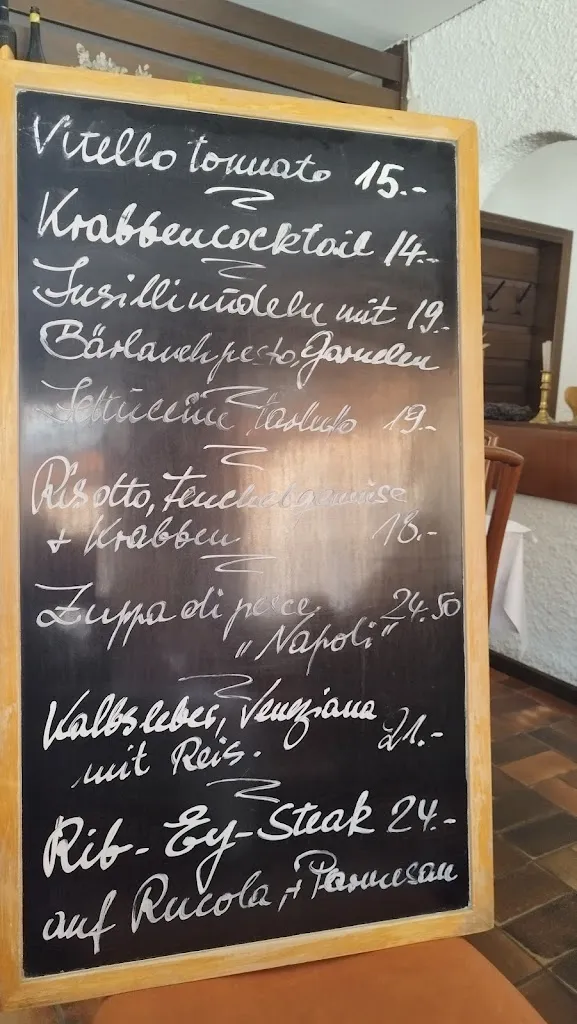 Vitello tonnato 15.-
Krabbencocktail 14.-
Fusillinudeln mit 19.-
Bärlauchpesto, Garnelen
Fettuccine Tartufo 19.-
Risotto, Fenchelgemüse
+ Krabben 18.-
Zuppa di pesce 24.50
"Napoli"
Kalbsleber, Veneziana
mit Reis. 21.-
Rib-Ey-Steak 24.-
auf Rucola, + Parmesan